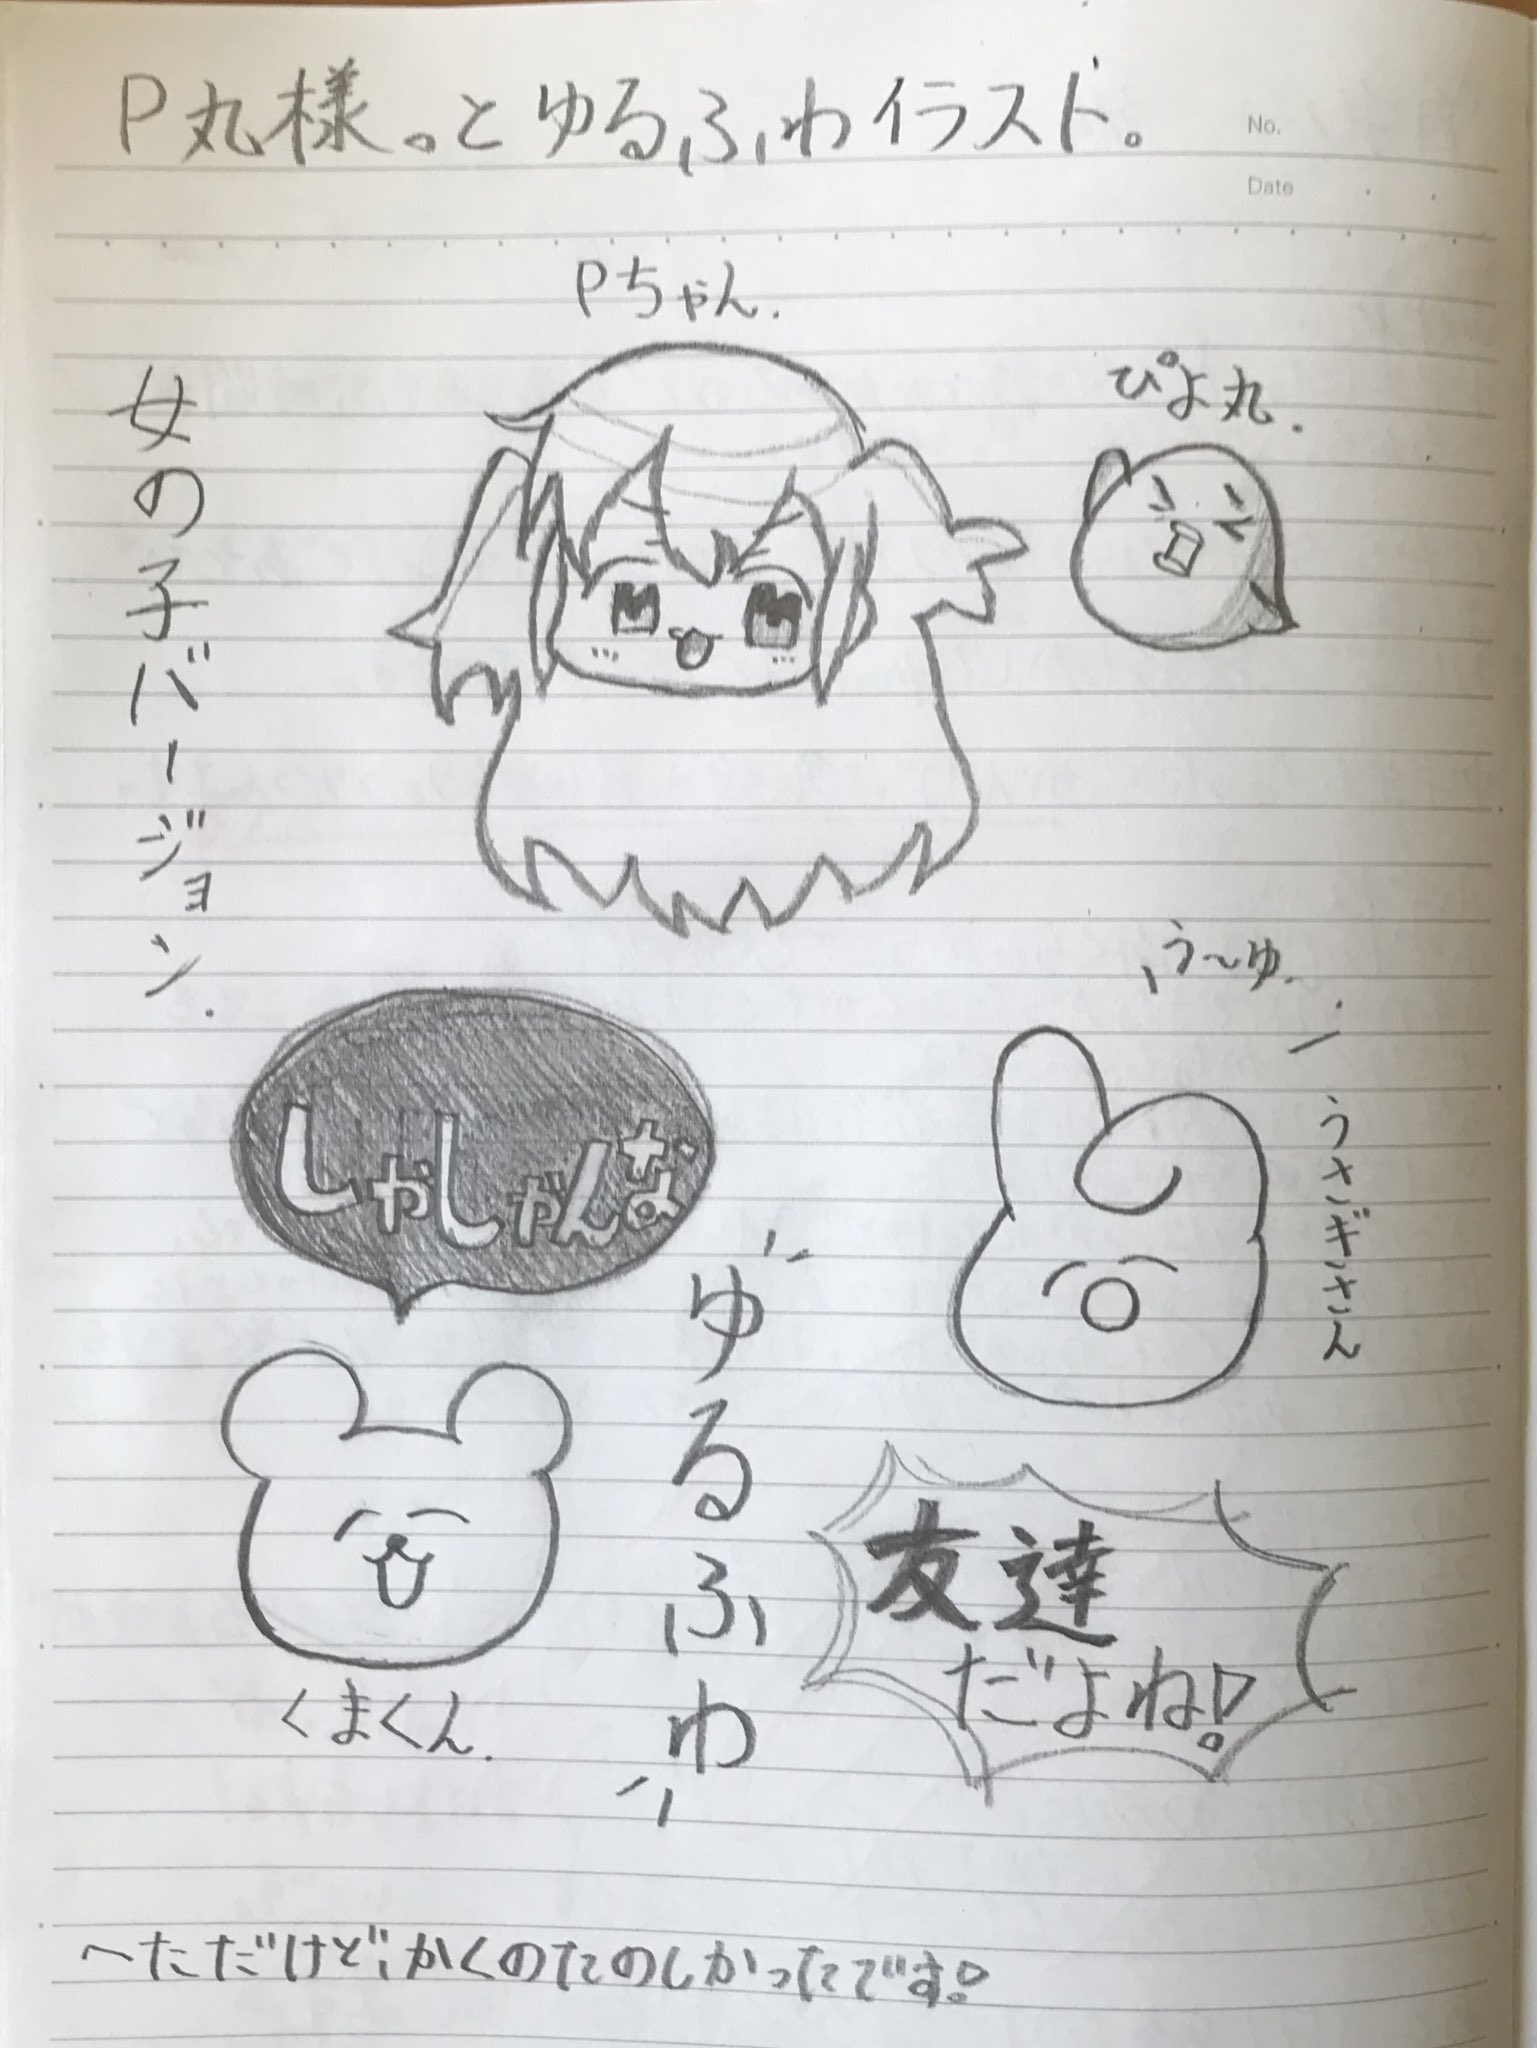 P丸様。とゆるふわイラスト。
No.
Date
Pちゃん.
ぴよ丸.
女の子バージョン.
う~ゆ.
うさぎさん
しゃしゃんな
ゆるふわ
友達
だよね!
くまくん.
へただけど、かくのたのしかったです!